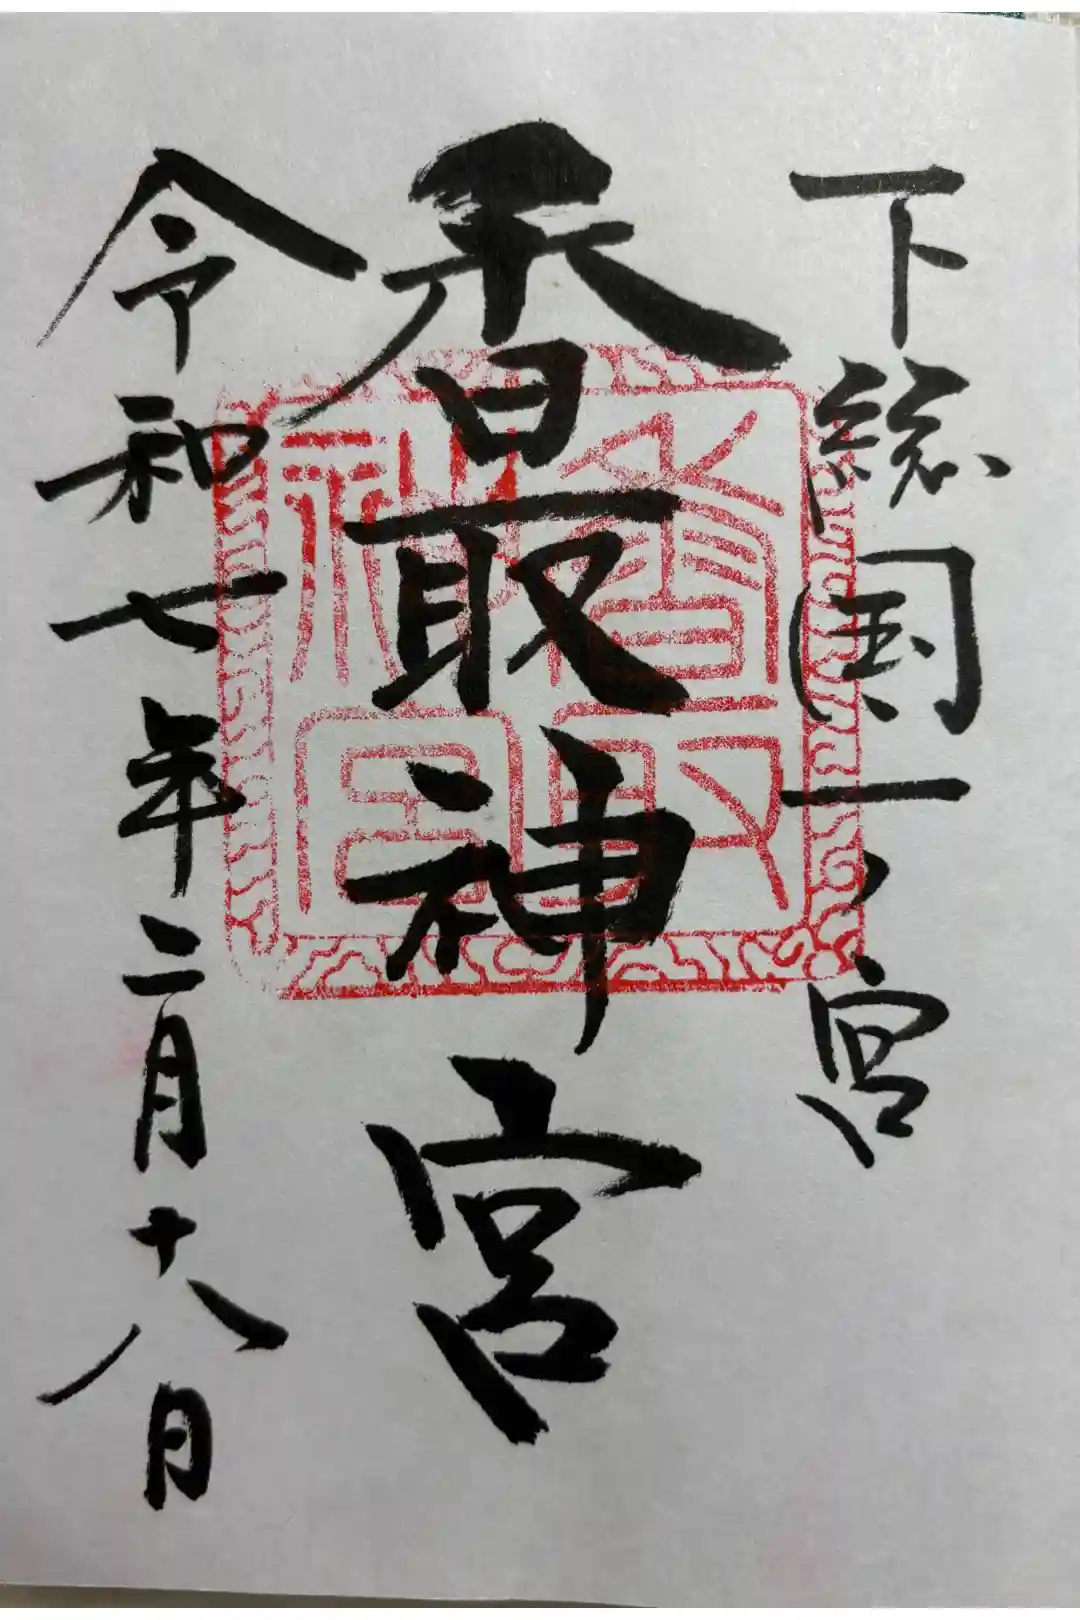 下総国一ノ宮
香取神宮
令和七年二月十八日
香取神宮